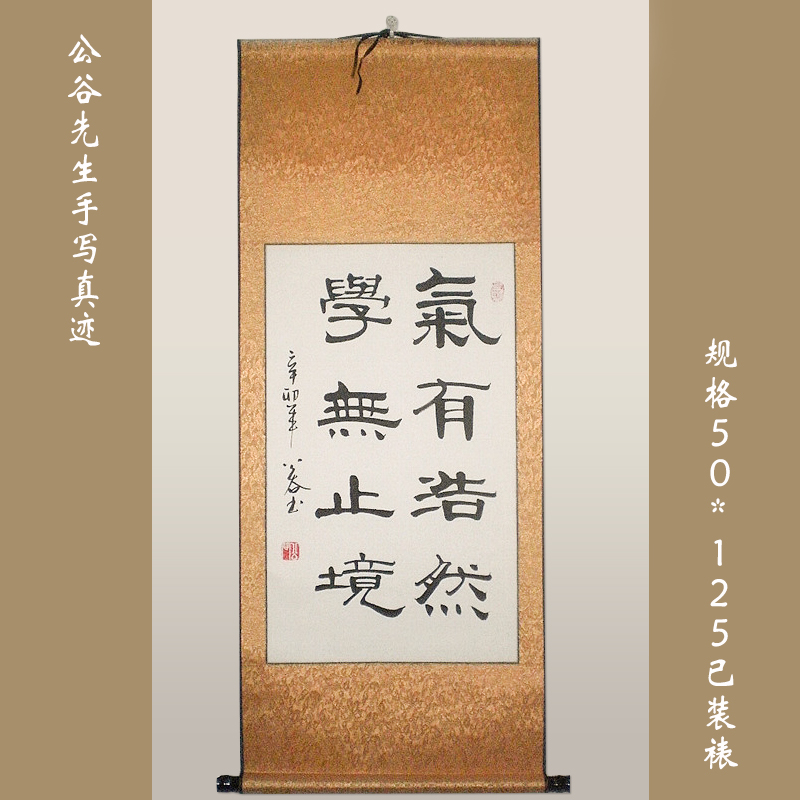 公谷先生手写真迹
氣有浩然
學無止境
辛卯年 公谷书
规格50*125已装裱